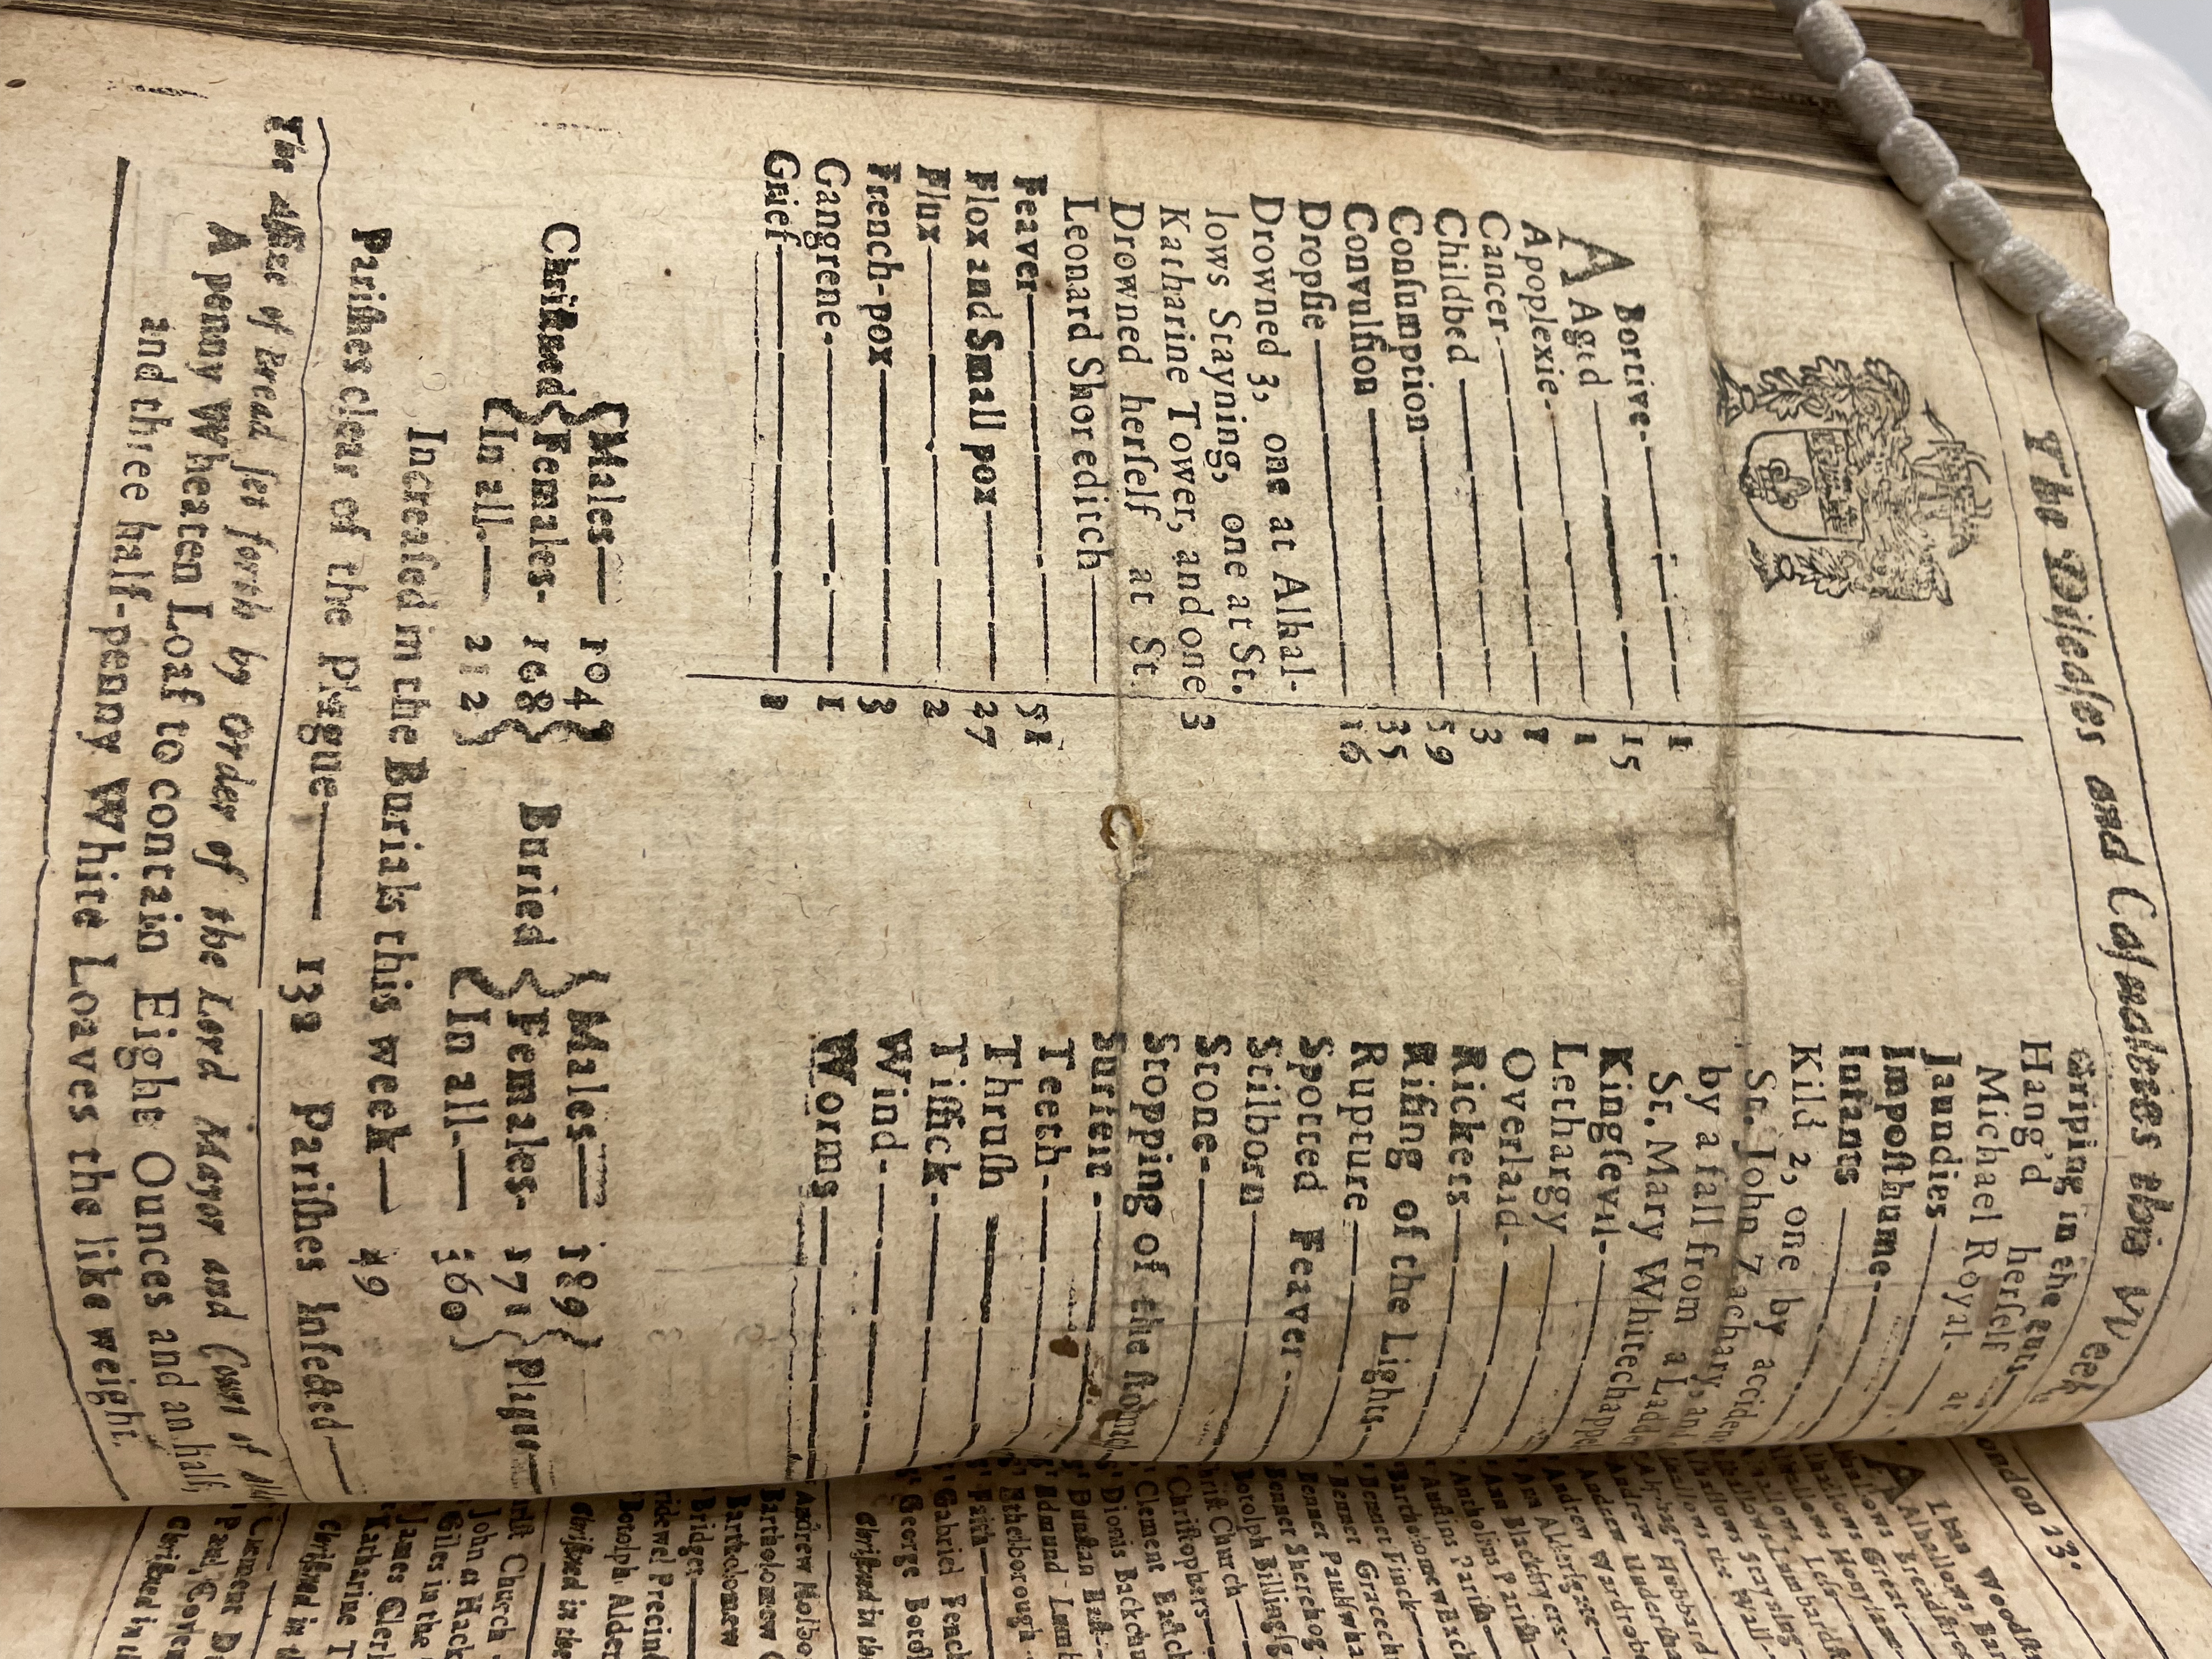 The Diseases and Casualties this Week
ABortive 1
Aged 15
Apoplexie 1
Cancer 1
Childbed 3
Conſumption 59
Convulſion 35
Dropſie 16
Drowned 3, one at Alhal-
lows Stayning, one at St.
Katharine Tower, and one 3
Drowned herſelf at St.
Leonard Shoreditch
Feaver 51
Flox and Small pox 27
Flux 2
French-pox 3
Gangrene 1
Grief
Griping in the guts
Hang'd herſelf at
Michael Royal
Jaundies
Impoſthume
Infants
Kild 2, one by acciden
St. John Zachary, an
by a fall from a Ladd
St. Mary Whitechappe
Kingſevil
Lethargy
Overlaid
Rickets
Riſing of the Lights
Rupture
Spotted Feaver
Stilborn
Stone
Stopping of the ſtomac
Surfeit
Teeth
Thruſh
Tiſſick
Wind
Worms
Chriſtned Males 104
Females 108
In all 212
Buried Males 189
Females 171
In all 360
Plague
Increaſed in the Burials this week 49
Pariſhes clear of the Plague 130 Pariſhes Infected
The Aſſize of Bread ſet forth by Order of the Lord Mayor and Court of Ald
A penny Wheaten Loaf to contain Eight Ounces and an half,
and three half-penny White Loaves the like weight.
ondon 23
ALbas Woodſt
Alhallows Bar
Alhallows Breadſtre
hallows Great
hallows Honylane
hallows Leſs
hallows Lumbardſt
hallows Stayning
hallows the Wall
Alphage
Andrew Hubbard
Andrew Underſha
Andrew Wardrobe
Ann Alderſgate
Ann Blackfryers
Antholins Pariſh
Auſtins Pariſh
Bartholomew Exch
Bennet Finck
Bennet Gracech
Bennet Paulſwha
Bennet Sherehog
Botolph Billingſg
Chriſt Church
Chriſtophers
Clement Eaſtch
Dionis Backchu
Dunſtan Eaſt
Edmund Lumb
Ethelborough
Faith
Gabriel Fench
George Botol
Chriſtned in the
Andrew Holbo
Bartholomew
Bartholomew
Bridget
ridewel Precin
Botolph Alder
Chriſtned in the
riſt Church
John at Hack
Giles in the
James Cler
Katharine T
Chriſtned in th
Clement D
Paul Coven
Chriſtned in th